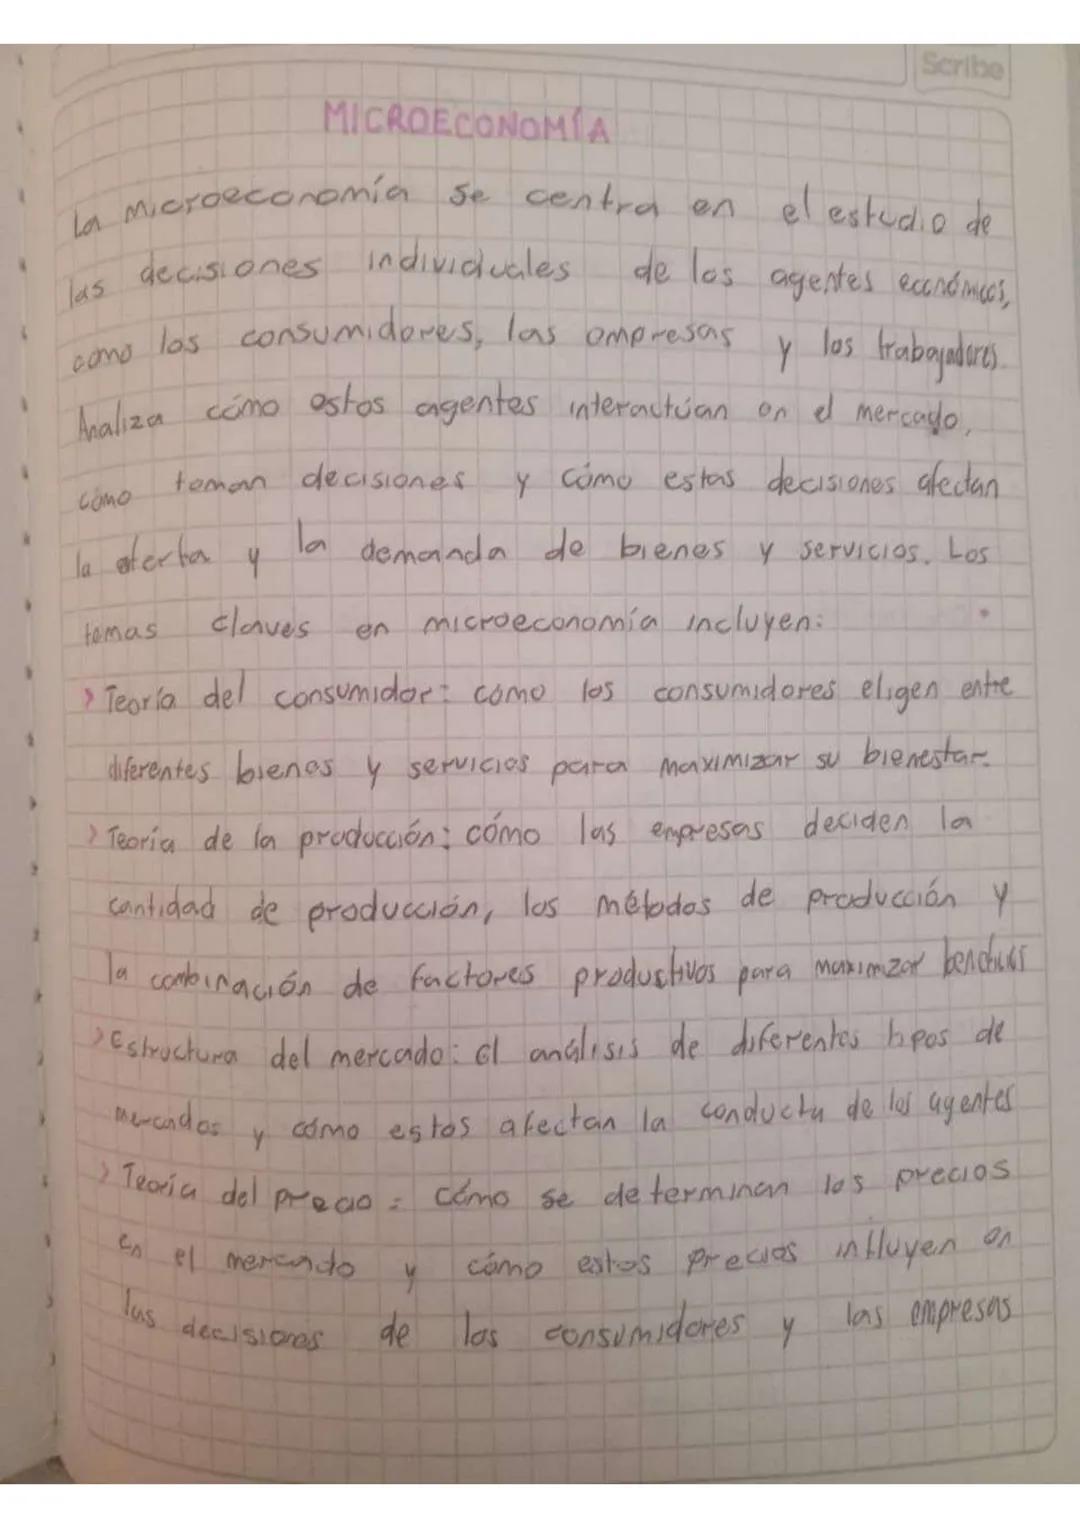 Scribe
MICROECONOMÍA
La Microeconomía se centra en el estudio de
las decisiones individuales de los agentes económicos,
como los consumidores, las empresas y los trabajadores.
Analiza cómo estos agentes interactúan en el mercado,
cómo toman decisiones y cómo estas decisiones afectan
la oferta y la demanda de bienes y servicios. Los
temas claves en microeconomía incluyen:
> Teoría del consumidor: cómo los consumidores eligen entre
diferentes bienes y servicios para maximizar su bienestar.
> Teoría de la producción: cómo las empresas deciden la
cantidad de producción, los métodos de producción y
la combinación de factores productivos para maximizar beneficios
> Estructura del mercado: el análisis de diferentes tipos de
mercados y cómo estos afectan la conducta de los agentes
> Teoría del precio: cómo se determinan los precios
en el mercado y cómo estos precios influyen en
las decisiones de los consumidores y las empresas